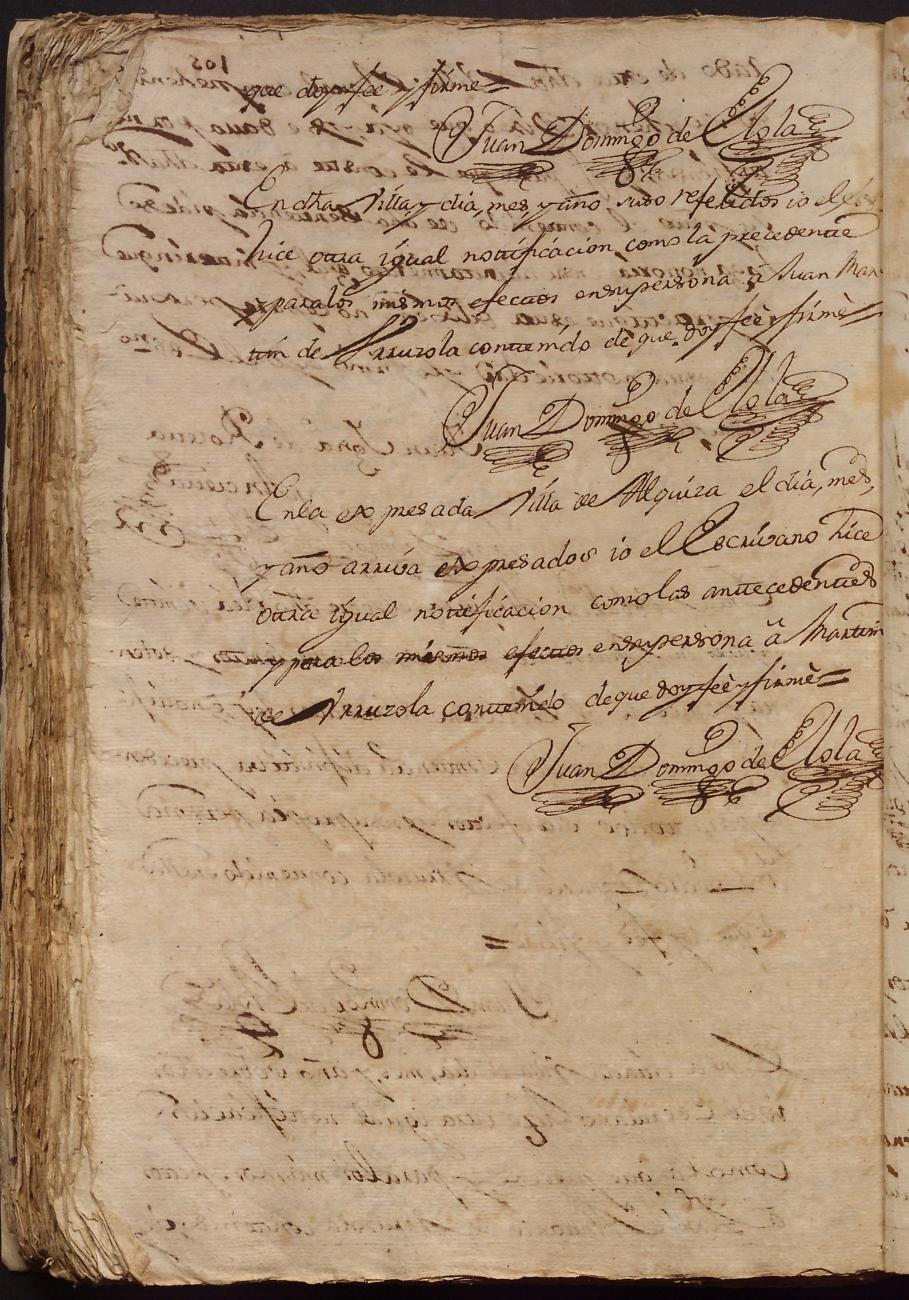 que doy fee y firmè=
Juan Domingo de Elola
En dha Villa y dia, mes, y año suso referidos io el
hice otra igual notificacion como la precedente
y para los mismos efectos en su persona à Juan Mar
tin de Arruzola contenido de que doy feè y firmè=
Juan Domingo de Elola
En la expresada Villa de Alquiza el dia, mes,
y año arriva expresados io el Escrivano hice
otra igual notificacion como las antecedentes
y para los mismos efectos en su persona à Martin
de Arruzola contenido de que doy feè y firmè=
Juan Domingo de Elola